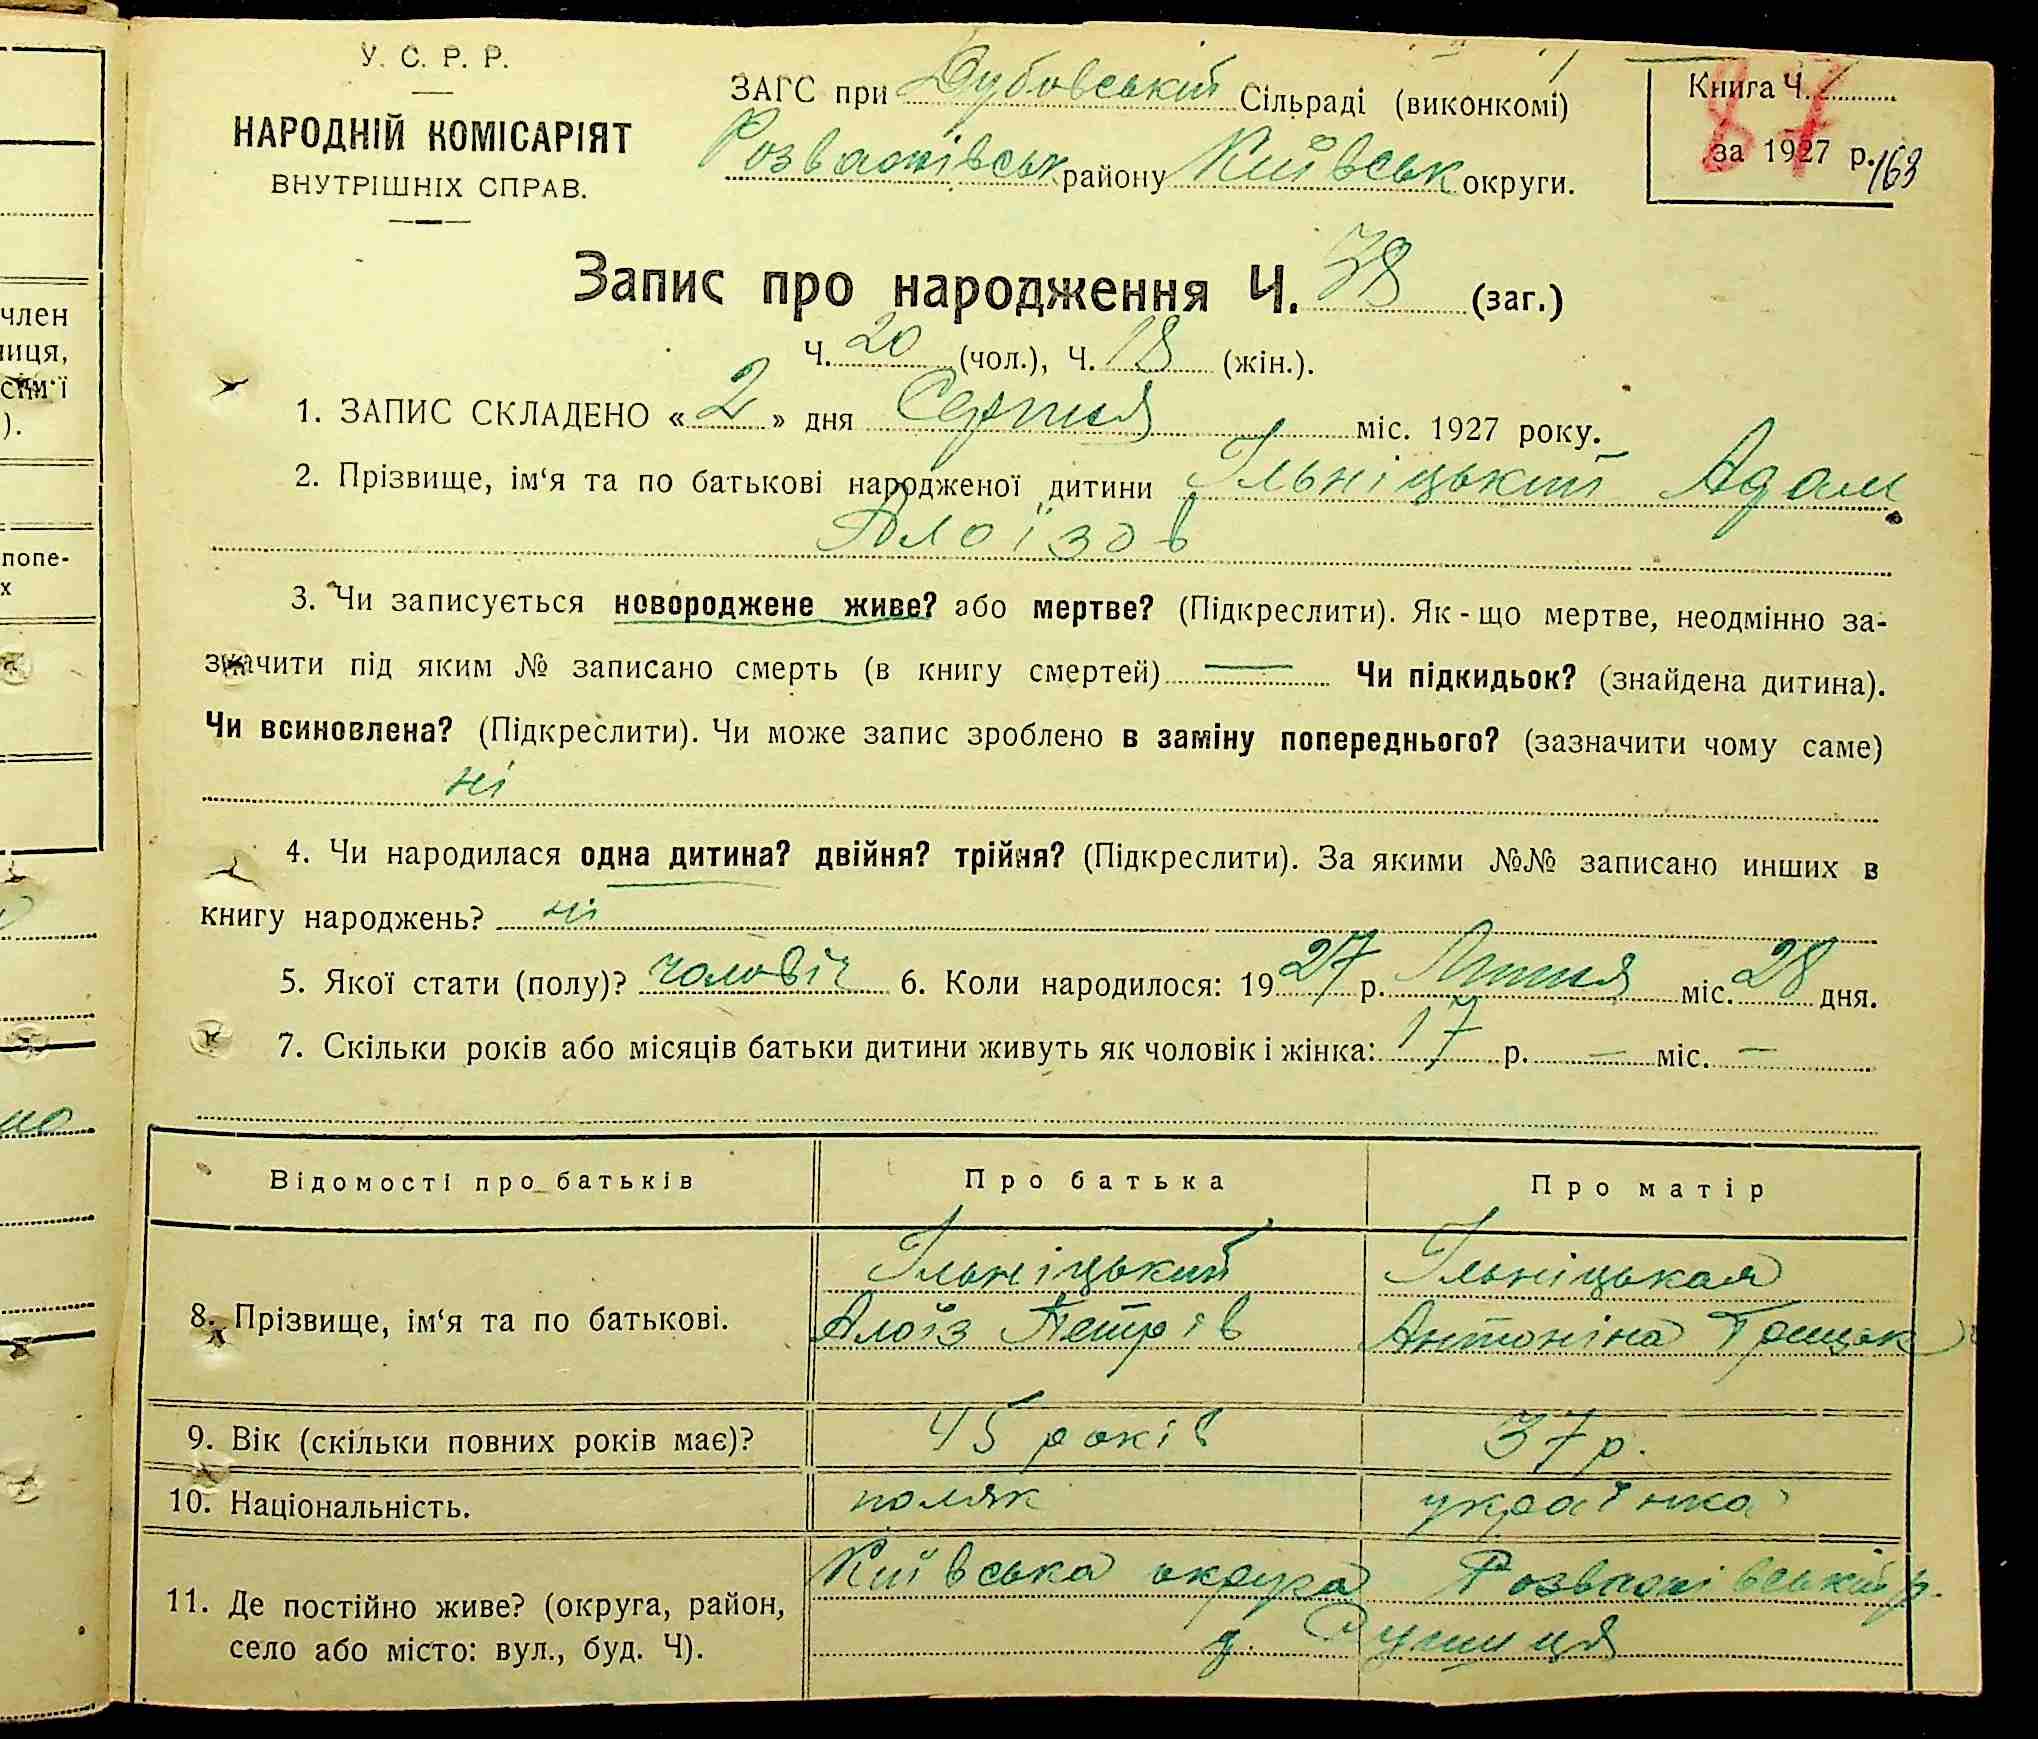 У. С. Р. Р.
НАРОДНІЙ КОМІСАРІЯТ
ВНУТРІШНІХ СПРАВ.
ЗАГС при Дубовській Сільраді (виконкомі)
Розважівськ району Київськ округи.
Книга Ч.
87
за 1927 р.
163
Запис про народження Ч. 38 (заг.)
Ч. 20 (чол.), Ч. 18 (жін.).
1. ЗАПИС СКЛАДЕНО «2» дня Серпня міс. 1927 року.
2. Прізвище, ім‘я та по батькові народженої дитини Ільніцький Адам
Алоїзов
3. Чи записується новороджене живе? або мертве? (Підкреслити). Як-що мертве, неодмінно за-
значити під яким № записано смерть (в книгу смертей) — Чи підкидьок? (знайдена дитина).
Чи всиновлена? (Підкреслити). Чи може запис зроблено в заміну попереднього? (зазначити чому саме)
ні
4. Чи народилася одна дитина? двійня? трійня? (Підкреслити). За якими №№ записано инших в
книгу народжень? ні
5. Якої стати (полу)? чоловіч 6. Коли народилося: 1927 р. Липня міс. 28 дня.
7. Скільки років або місяців батьки дитини живуть як чоловік і жінка: 17 р. — міс. —
Відомості про батьків Про батька Про матір
Ільніцький Ільніцькая
8. Прізвище, ім‘я та по батькові. Алоїз Петрів Антоніна
9. Вік (скільки повних років має)? 45 років 37 р.
10. Національність. поляк українка
11. Де постійно живе? (округа, район, Київська округа Розважівський р.
село або місто: вул., буд. Ч).
член
ниця,
сім‘ї
).
попе-
х